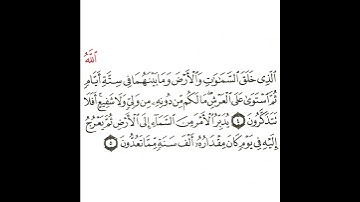 ٱللَّهُ
ٱلَّذِى خَلَقَ ٱلسَّمَـٰوَٰتِ وَٱلْأَرْضَ وَمَا بَيْنَهُمَا فِى سِتَّةِ أَيَّامٍ
ثُمَّ ٱسْتَوَىٰ عَلَى ٱلْعَرْشِ ۖ مَا لَكُم مِّن دُونِهِۦ مِن وَلِىٍّ وَلَا شَفِيعٍ ۚ أَفَلَا
تَتَذَكَّرُونَ ٤ يُدَبِّرُ ٱلْأَمْرَ مِنَ ٱلسَّمَآءِ إِلَى ٱلْأَرْضِ ثُمَّ يَعْرُجُ
إِلَيْهِ فِى يَوْمٍ كَانَ مِقْدَارُهُۥٓ أَلْفَ سَنَةٍ مِّمَّا تَعُدُّونَ ٥